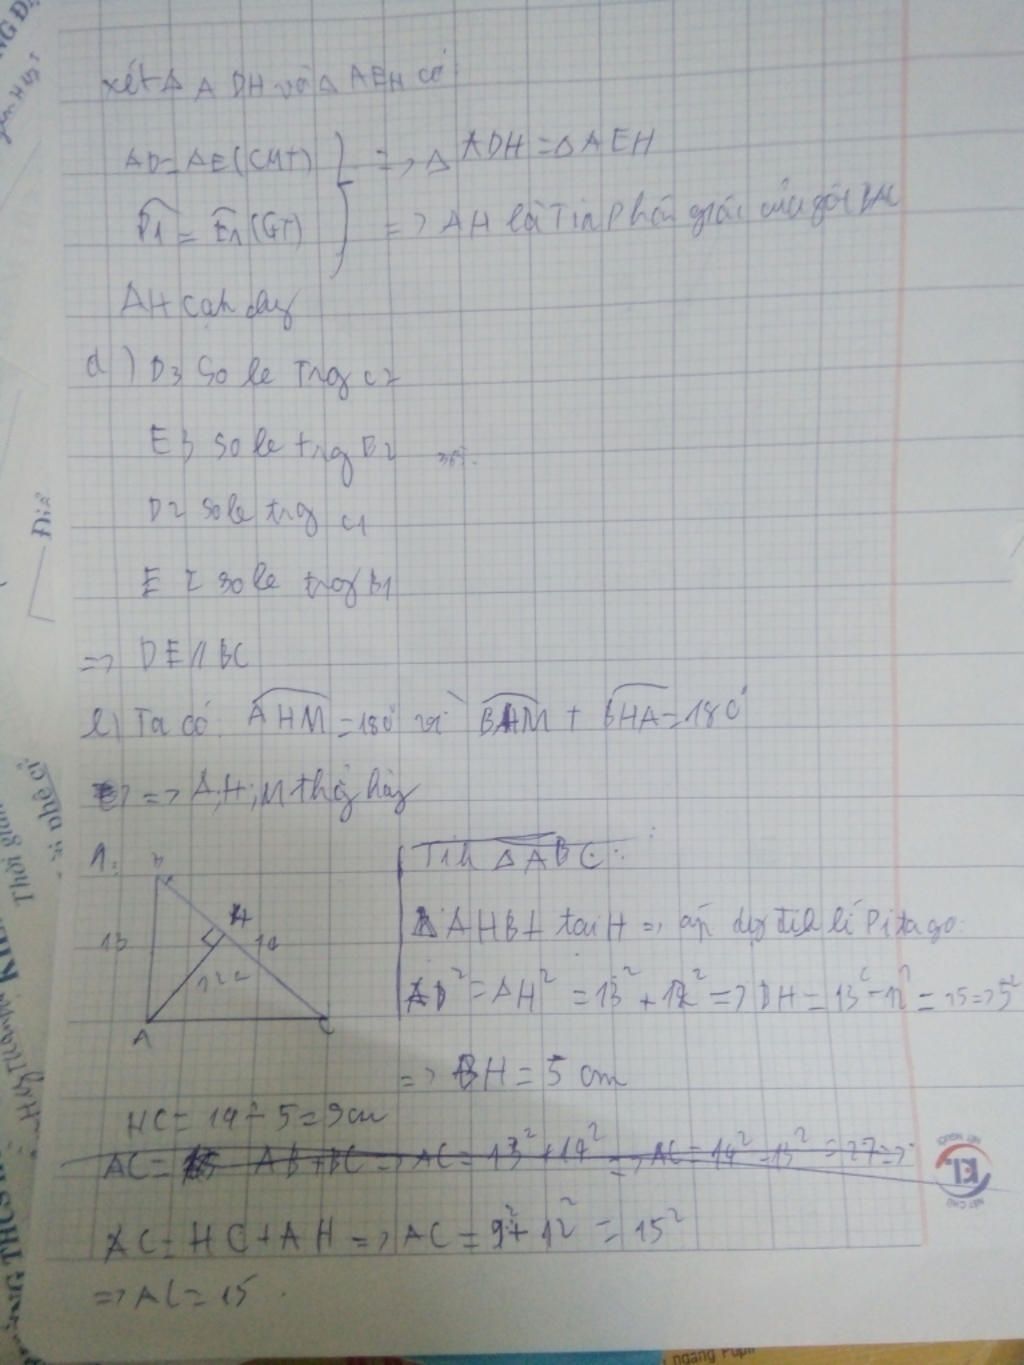 xét Δ ADH và Δ AEH có
AD = AE (CMT) } => Δ ADH = Δ AEH
D1 = E1 (GT) => AH là Tia Phân giác của góc BAC
AH cạnh
d) D3 So le Trg C2
E3 so le trg B2
D2 so le trg C1
E2 so le trg B1
=> DE // BC
e) Ta có AHM = 180° vì BHM + BHA = 180°
=> A, H, M thg
1.
B
H
13
14
12
A
C
Tính Δ ABC:
Δ AHB tại H => áp định lí Pitago
= AH² = 13² + 12² => BH = 13² - 12² = 25 => 5²
=> BH = 5 cm
HC = 14 - 5 = 9cm
AC = AB + BC => AC = 13² + 14² => AC = 14² - 13² = 27 =>
AC = HC + AH => AC = 9² + 12² = 15²
=> AC = 15.
KL
NET CHU
NET NGUOI